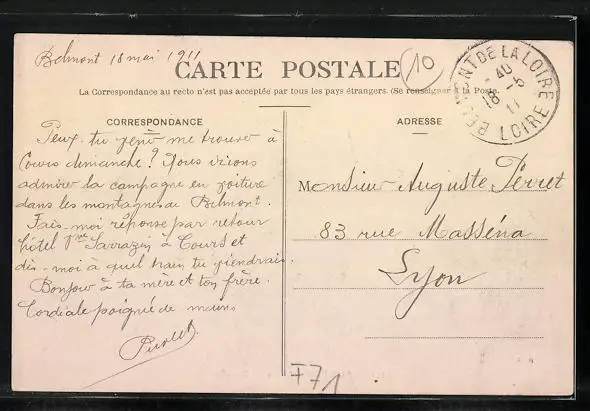 Belmont 18 mai 1911
10
CARTE POSTALE
La Correspondance au recto n'est pas acceptée par tous les pays étrangers. (Se renseigner à la Poste.
BELMONT DE LA LOIRE
18 -5
11
LOIRE
CORRESPONDANCE
Peux-tu venir me trouver à
Cours dimanche? Nous irions
admirer la campagne en voiture
dans les montagnes de Belmont.
Fais-moi réponse par retour
hôtel Sarrazin à Cours et
dis-moi à quel train tu viendrais.
Bonjour à ta mère et ton frère.
Cordiale poignée de mains
ADRESSE
Monsieur Auguste Perret
83 rue Masséna
Lyon
F71